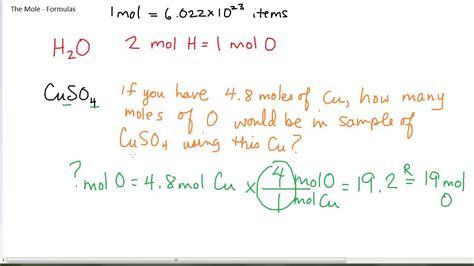 The Mole - Formulas
1mol = 6.022x10²³ items
H₂O 2 mol H = 1 mol O
CuSO₄ If you have 4.8 moles of Cu, how many
moles of O would be in sample of
CuSO₄ using this Cu?
? mol O = 4.8 mol Cu x 4 mol O / 1 mol Cu = 19.2 R= 19 mol O